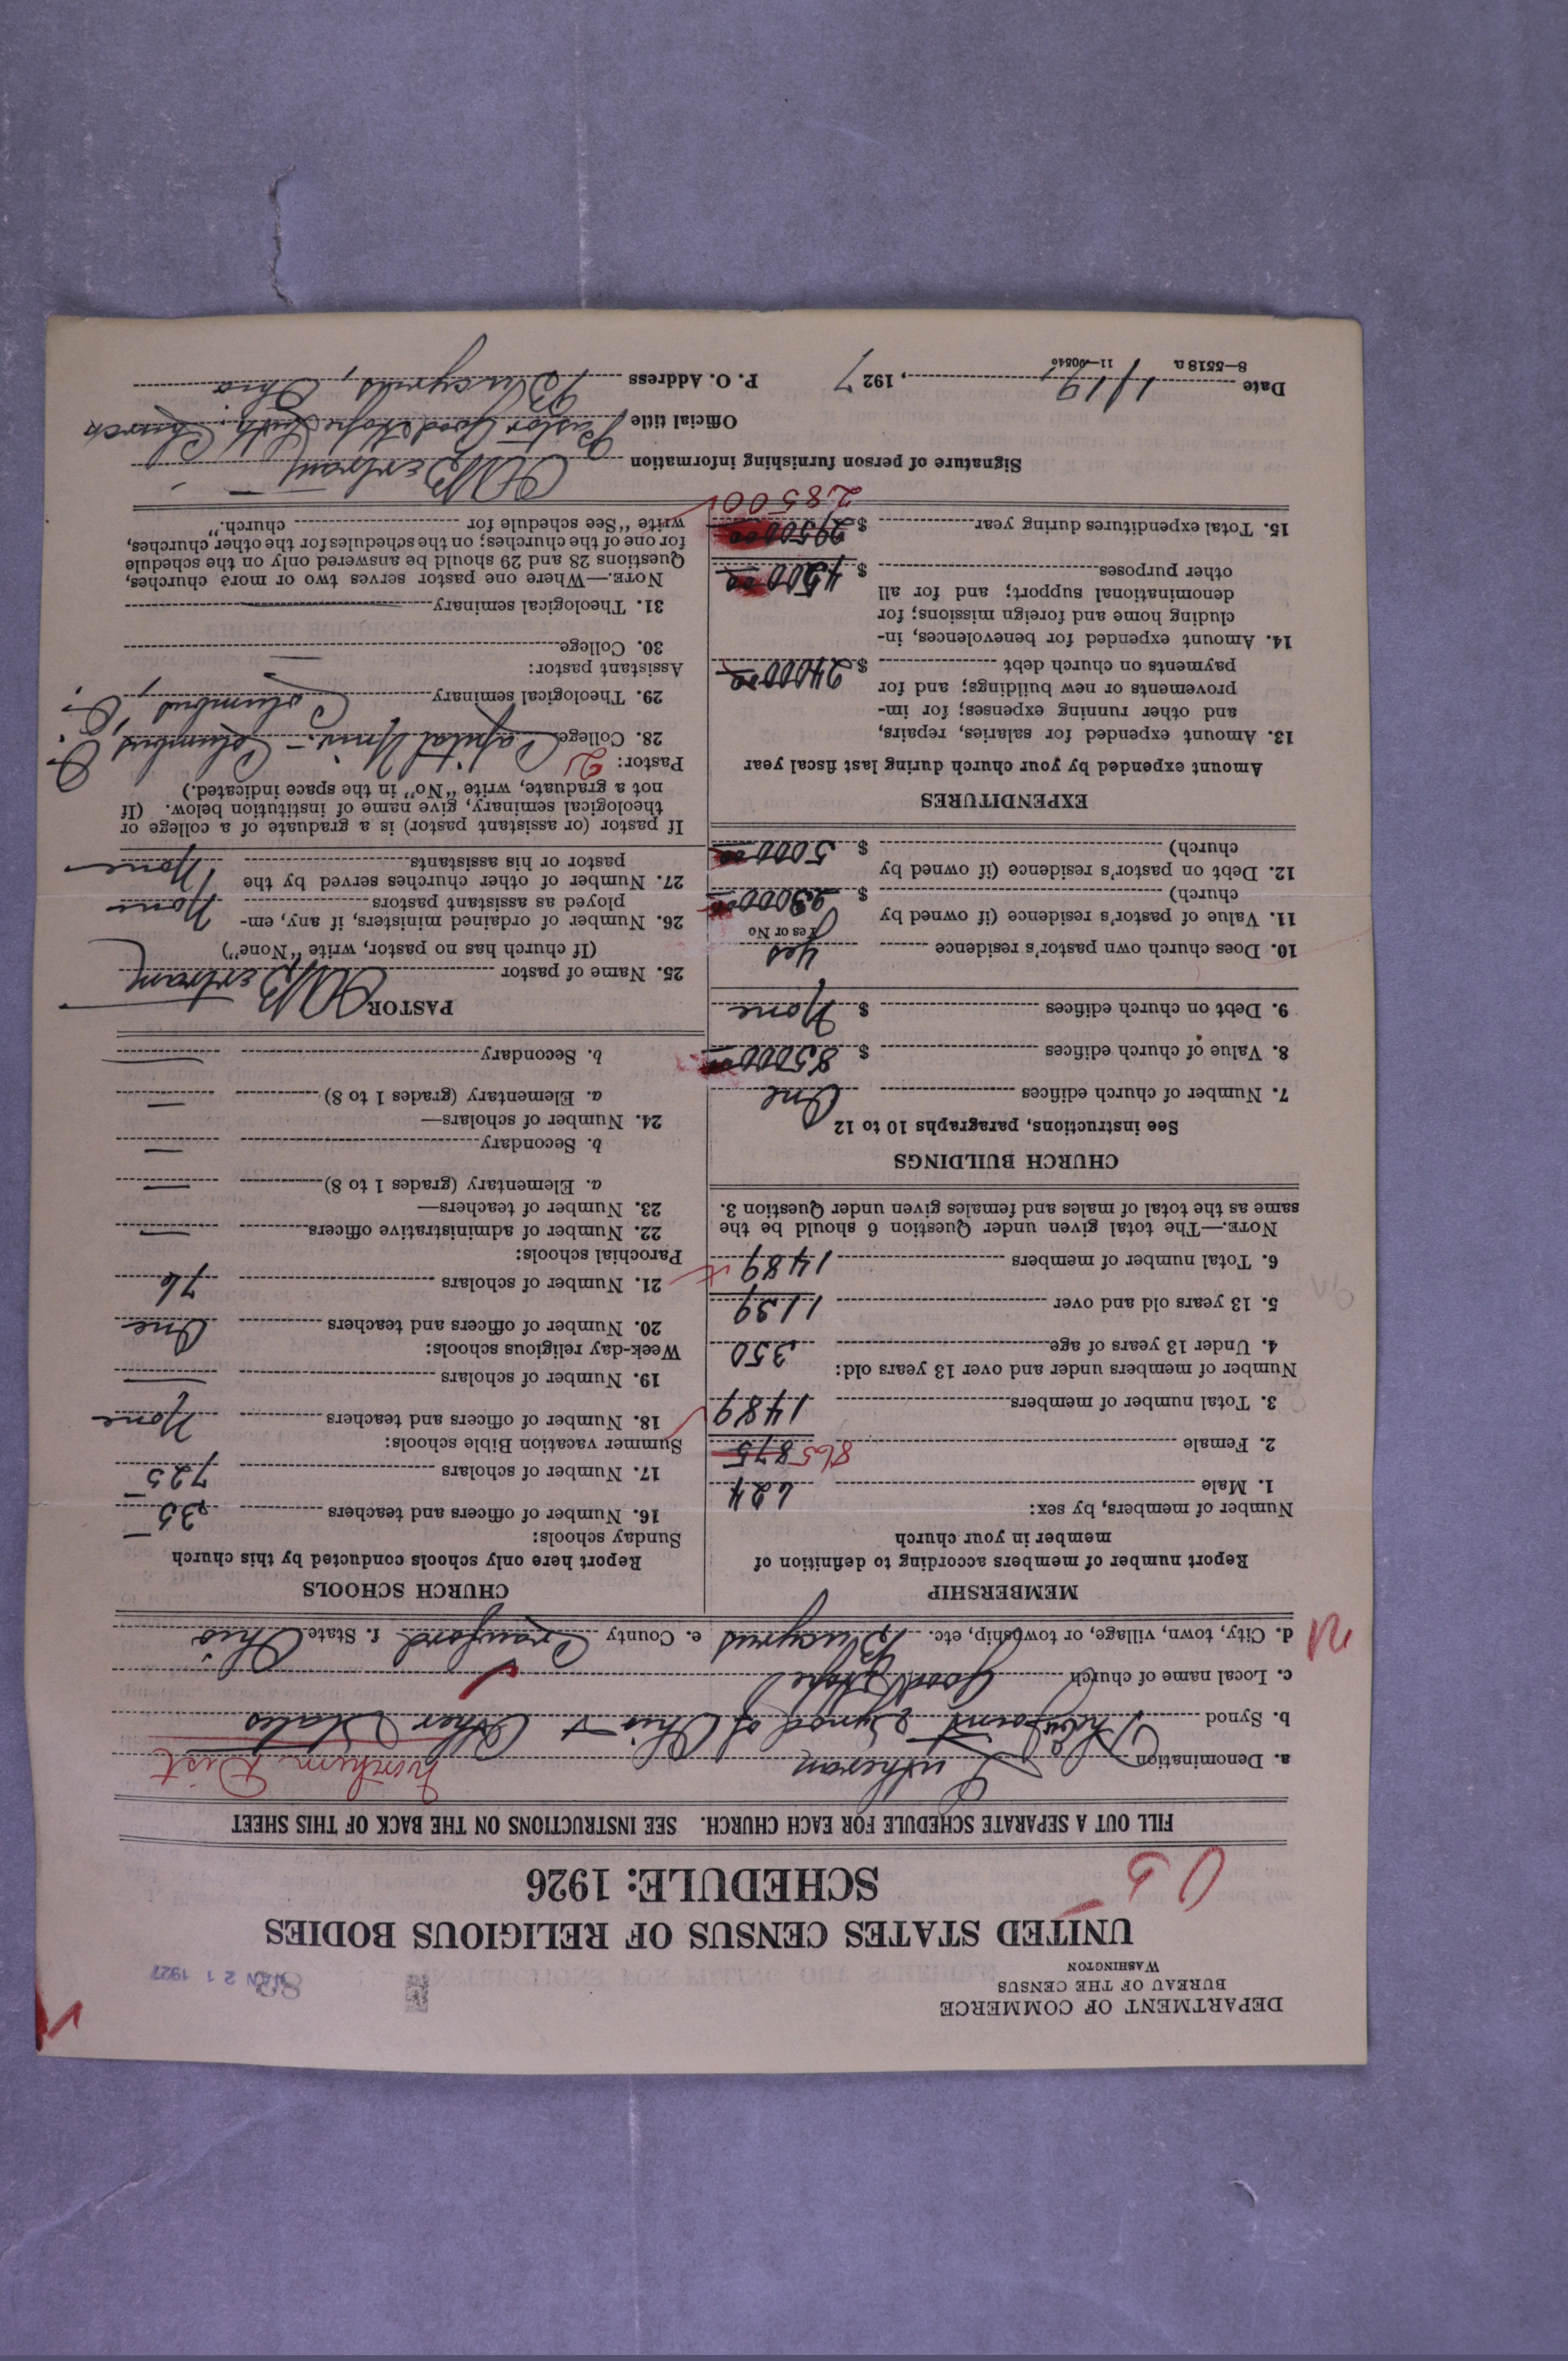 DEPARTMENT OF COMMERCE
BUREAU OF THE CENSUS
WASHINGTON
JAN 21 1927
UNITED STATES CENSUS OF RELIGIOUS BODIES
SCHEDULE: 1926
FILL OUT A SEPARATE SCHEDULE FOR EACH CHURCH. SEE INSTRUCTIONS ON THE BACK OF THIS SHEET
a. Denomination Lutheran Dist
b. Synod The Joint Synod of Ohio & Other States
c. Local name of church Good Hope
d. City, town, village, or township, etc. Bucyrus e. County Crawford f. State Ohio
MEMBERSHIP
Report number of members according to definition of
member in your church
Number of members, by sex:
1. Male 624
2. Female 865 875
3. Total number of members 1489
Number of members under and over 13 years old:
4. Under 13 years of age 350
5. 13 years old and over 1139
6. Total number of members 1489
NOTE.—The total given under Question 6 should be the
same as the total of males and females given under Question 3.
CHURCH BUILDINGS
See instructions, paragraphs 10 to 12
7. Number of church edifices One
8. Value of church edifices $ 85000
9. Debt on church edifices $ None
10. Does church own pastor's residence Yes
Yes or No
11. Value of pastor's residence (if owned by
church) $
12. Debt on pastor's residence (if owned by
church) $ 5000 00
EXPENDITURES
Amount expended by your church during last fiscal year
13. Amount expended for salaries, repairs,
and other running expenses; for im-
provements or new buildings; and for
payments on church debt $ 24000 00
14. Amount expended for benevolences, in-
cluding home and foreign missions; for
denominational support; and for all
other purposes $ 4500 00
15. Total expenditures during year $
28500
CHURCH SCHOOLS
Report here only schools conducted by this church
Sunday schools:
16. Number of officers and teachers 35
17. Number of scholars 725
Summer vacation Bible schools:
18. Number of officers and teachers None
19. Number of scholars
Week-day religious schools:
20. Number of officers and teachers One
21. Number of scholars 76
Parochial schools:
22. Number of administrative officers
23. Number of teachers—
a. Elementary (grades 1 to 8)
b. Secondary
24. Number of scholars—
a. Elementary (grades 1 to 8)
b. Secondary
PASTOR
25. Name of pastor Bertram
(If church has no pastor, write "None")
26. Number of ordained ministers, if any, em-
ployed as assistant pastors None
27. Number of other churches served by the
pastor or his assistants None
If pastor (or assistant pastor) is a graduate of a college or
theological seminary, give name of institution below. (If
not a graduate, write "No" in the space indicated.)
Pastor: 2
28. College Capital Univ. - Columbus, O.
29. Theological seminary Columbus, O.
Assistant pastor:
30. College
31. Theological seminary
NOTE.—Where one pastor serves two or more churches,
Questions 28 and 29 should be answered only on the schedule
for one of the churches; on the schedules for the other churches,
write "See schedule for church."
Signature of person furnishing information Bertram
Official title Pastor Good Hope Luth. Church
Date 1/19, 1927 P. O. Address Bucyrus, Ohio
8—5518a